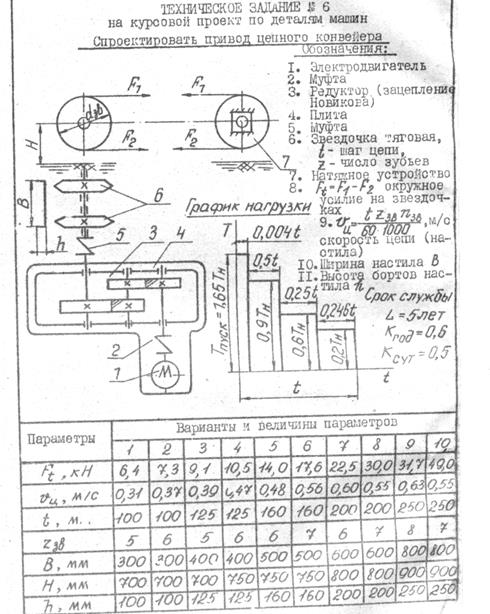 ТЕХНИЧЕСКОЕ ЗАДАНИЕ № 6
на курсовой проект по деталям машин
Спроектировать привод цепного конвейера
Обозначения:
1. Электродвигатель
2. Муфта
3. Редуктор (зацепление Новикова)
4. Плита
5. Муфта
6. Звездочка тяговая,
t - шаг цепи,
z - число зубьев
7. Натяжное устройство
8. Ft=F1-F2 окружное
усилие на звездочках
9. vц = t zзв nзв / 60·1000, м/с
скорость цепи (настила)
10. Ширина настила B
11. Высота бортов настила h
F1
F1
dзв
F2
F2
H
B
h
7
6
5
3
4
2
1
M
График нагрузки
T
0,004t
0,5t
0,25t
0,246t
Tпуск=1,65Tн
0,9Tн
0,6Tн
0,2Tн
t
t
Срок службы
L = 5 лет
Kгод = 0,6
Kсут = 0,5
Параметры
Варианты и величины параметров
1 2 3 4 5 6 7 8 9 10
Ft, кН 6,4 7,3 9,1 10,5 14,0 17,6 22,5 30,0 31,7 49,0
vц, м/с 0,31 0,37 0,39 0,47 0,48 0,56 0,60 0,55 0,63 0,55
t, м.. 100 100 125 125 160 160 200 200 250 250
zзв 5 6 5 6 6 7 6 7 8 7
B, мм 300 300 400 400 500 500 600 600 800 800
H, мм 700 700 700 750 750 750 800 800 900 900
h, мм 100 100 125 125 160 160 200 200 250 250